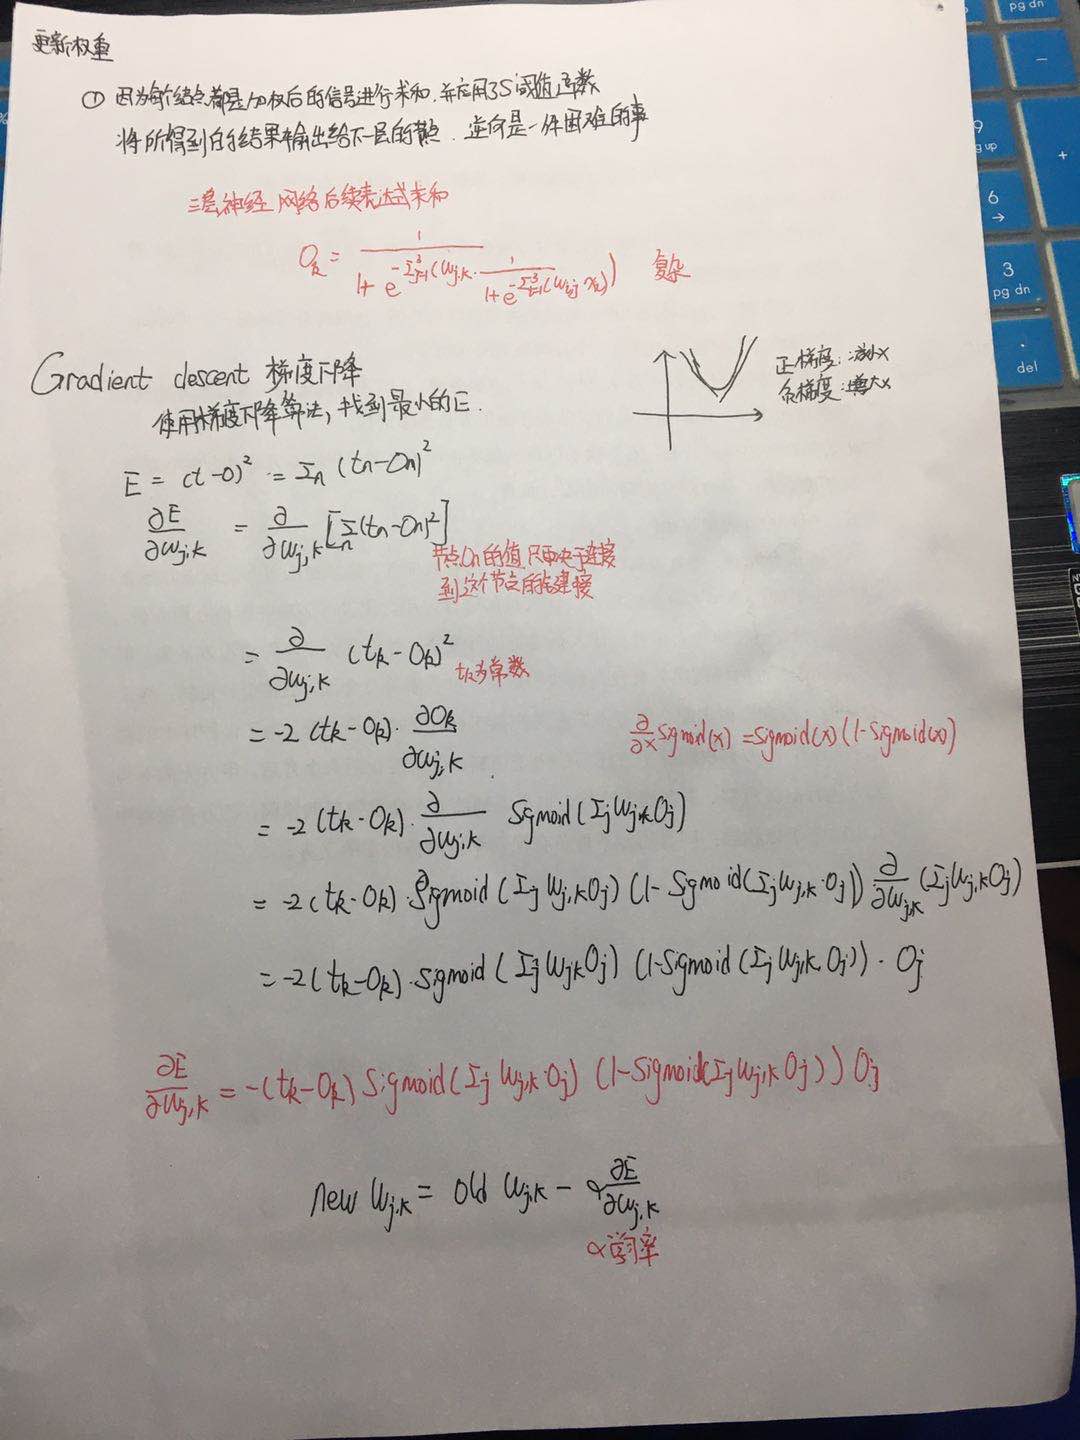 更新权重
① 因为每个结点都是加权后的信号进行求和,并应用了S阈值函数
将所得到的结果输出给下一层的散点. 逆向是一件困难的事
三层神经网络后续表达式求和
O_k = 1 / (1 + e^{-Σ_{j=1}^{3}(W_{j,k} · 1 / (1 + e^{-Σ_{i=1}^{3}(W_{i,j} x_i)}))}) 复杂
Gradient descent 梯度下降
使用梯度下降算法, 找到最小的E.
正梯度: 减小x
负梯度: 增大x
E = (t-O)^2 = Σ_n (t_n-O_n)^2
∂E/∂W_{j,k} = ∂/∂W_{j,k} [Σ_n (t_n-O_n)^2]
节点O_n的值只取决于连接
到这个节点的连接
= ∂/∂W_{j,k} (t_k-O_k)^2
t_k为常数
= -2(t_k-O_k) · ∂O_k/∂W_{j,k}
∂/∂x sigmoid(x) = sigmoid(x)(1-sigmoid(x))
= -2(t_k-O_k) · ∂/∂W_{j,k} Sigmoid(Σ_j W_{j,k} O_j)
= -2(t_k-O_k) · Sigmoid(Σ_j W_{j,k} O_j)(1-Sigmoid(Σ_j W_{j,k} · O_j)) ∂/∂W_{j,k} (Σ_j W_{j,k} O_j)
= -2(t_k-O_k) · Sigmoid(Σ_j W_{jk} O_j)(1-Sigmoid(Σ_j W_{j,k} O_j)) · O_j
∂E/∂W_{j,k} = -(t_k-O_k) Sigmoid(Σ_j W_{j,k} · O_j)(1-Sigmoid(Σ_j W_{j,k} O_j)) O_j
new W_{j,k} = old W_{j,k} - α ∂E/∂W_{j,k}
α学习率
pg dn
-
9
pg up
+
6
→
3
pg dn
.
del